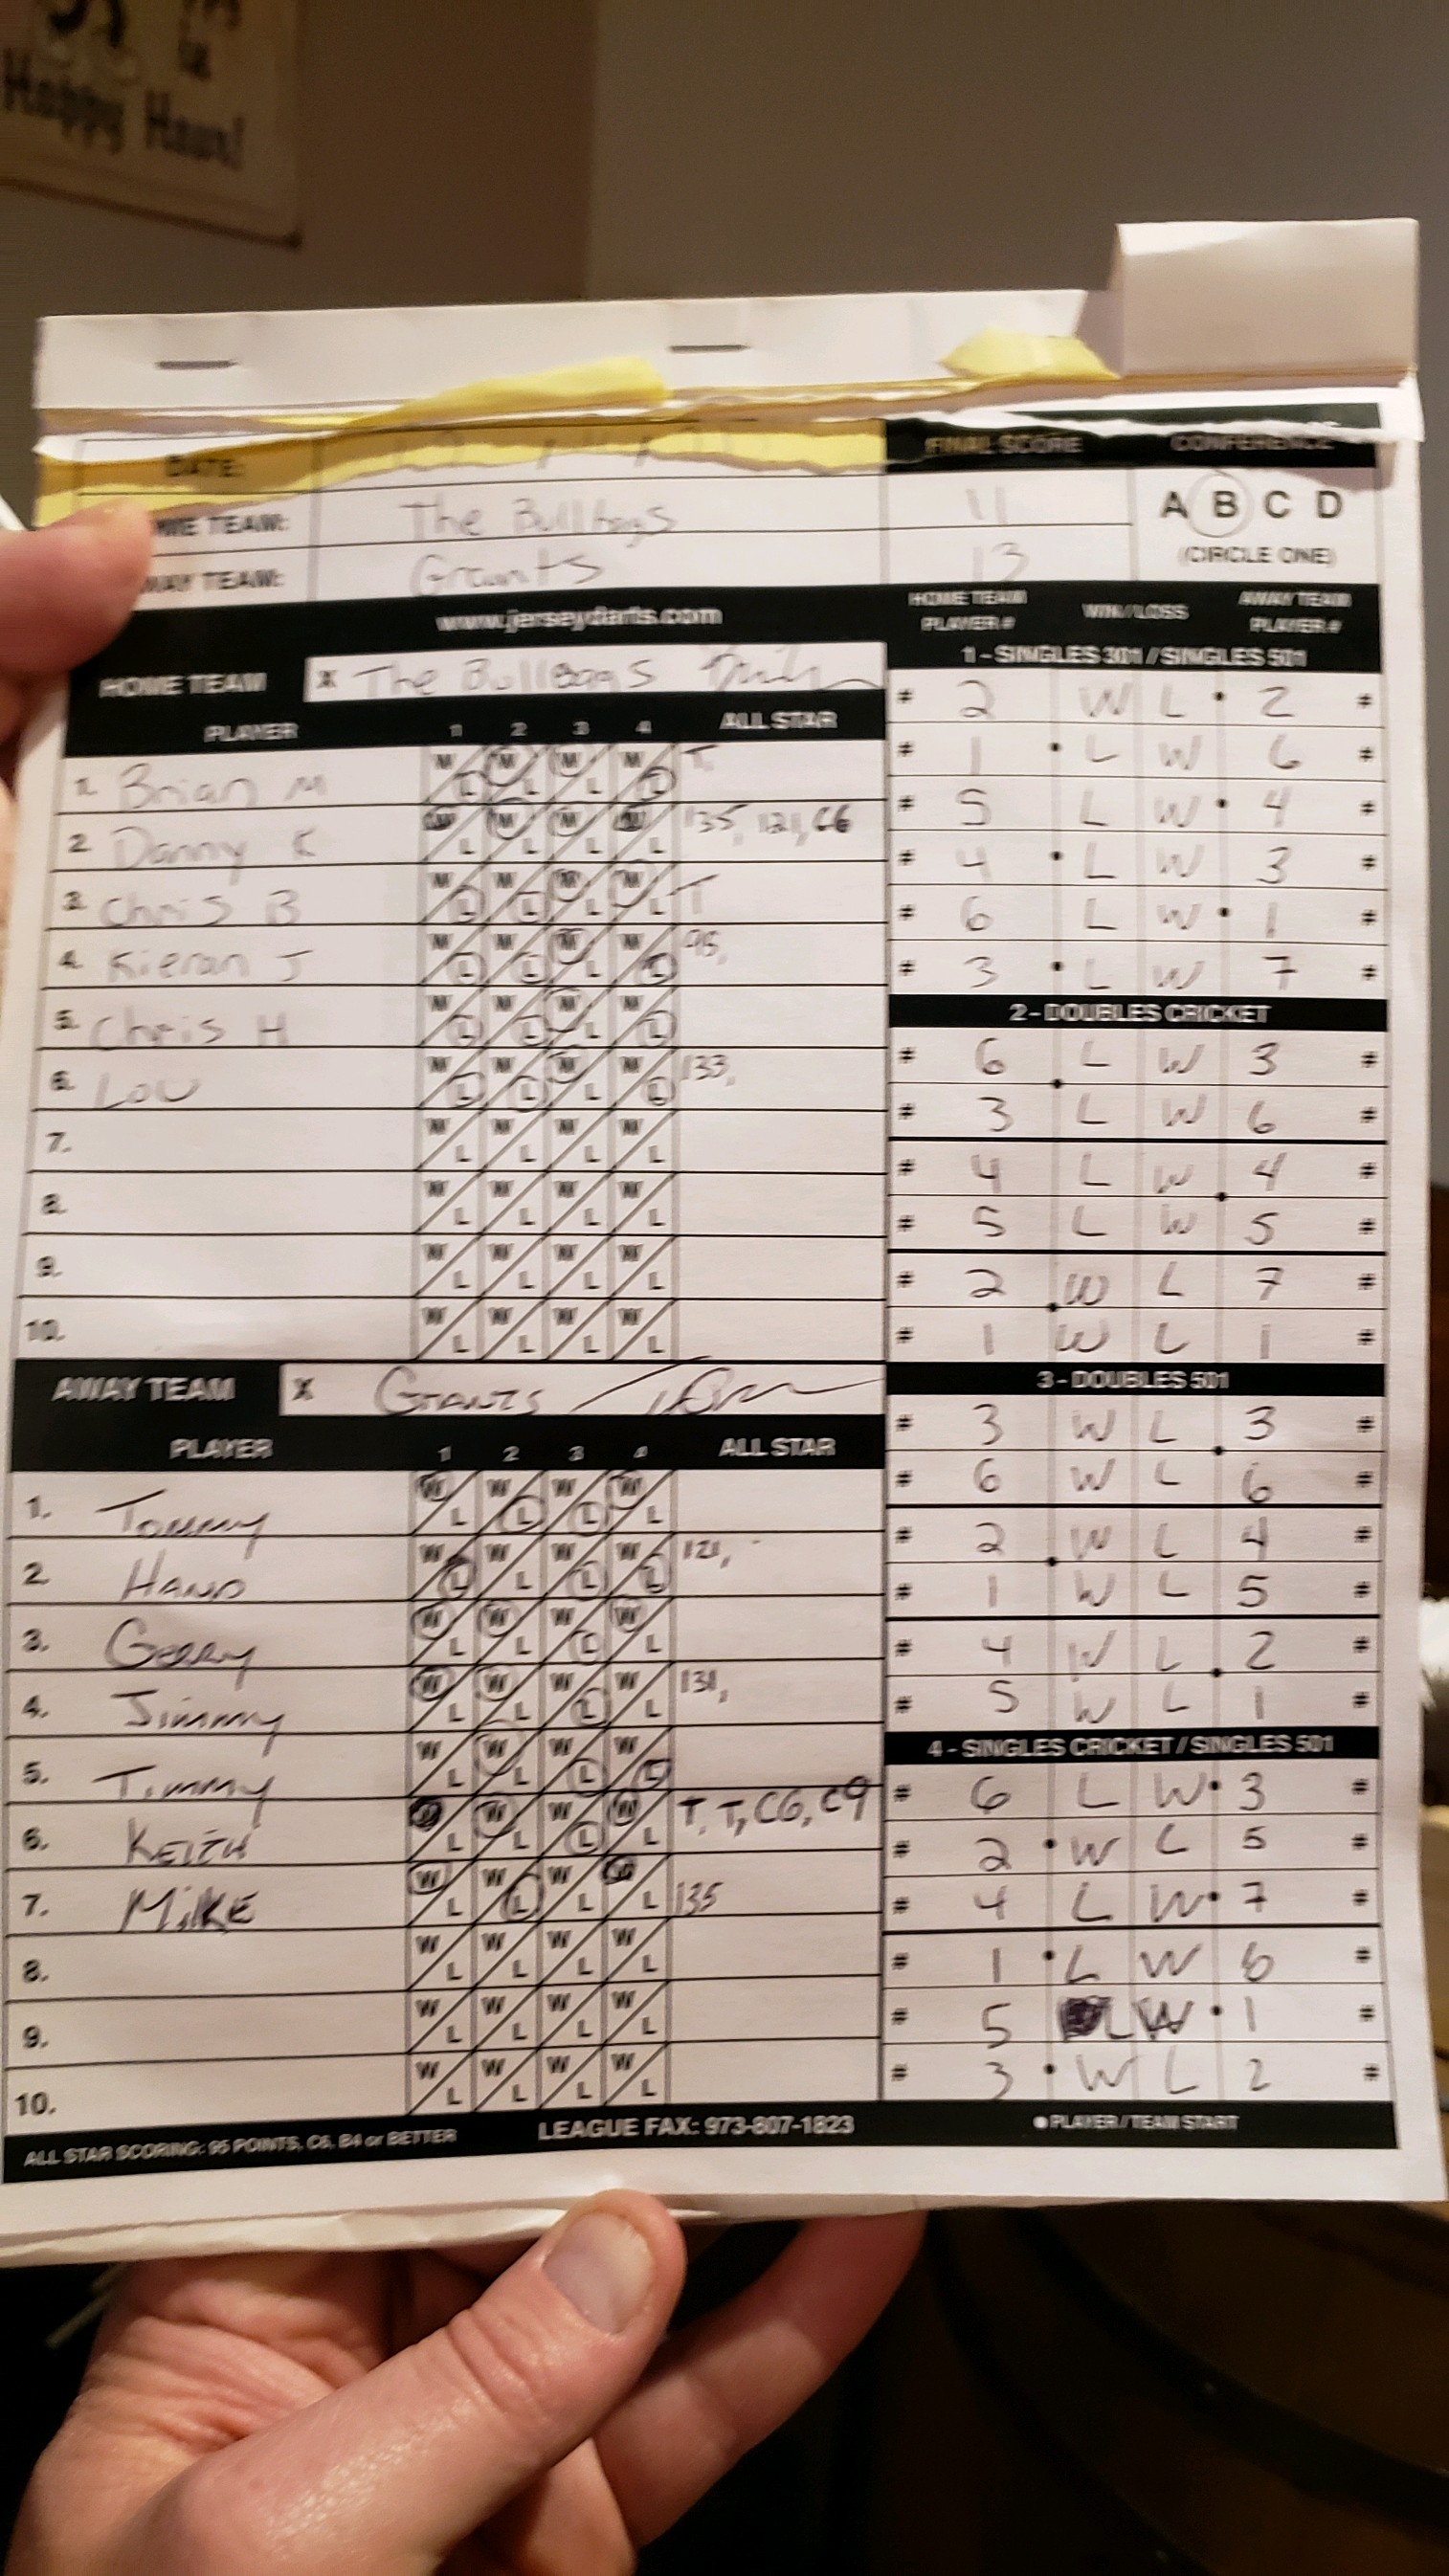 Happy Hour!
DATE:
FINAL SCORE CONFERENCE
TEAM: The Bullbags 11 A B C D
TEAM: Giants 13 (CIRCLE ONE)
www.jerseydarts.com
HOME TEAM PLAYER # WIN / LOSS AWAY TEAM PLAYER #
HOME TEAM X The Bullbags
PLAYER 1 2 3 4 ALL STAR
1. Brian M W L W L W L W L T,
2. Danny K W L W L W L W L 135, 121, C6
3. Chris B W L W L W L W L T
4. Kieran J W L W L W L W L 98,
5. Chris H W L W L W L W L
6. Lou W L W L W L W L 133,
7. W L W L W L W L
8. W L W L W L W L
9. W L W L W L W L
10. W L W L W L W L
AWAY TEAM X GIANTS
PLAYER 1 2 3 4 ALL STAR
1. Tommy W L W L W L W L
2. HAND W L W L W L W L 121,
3. Gerry W L W L W L W L
4. Jimmy W L W L W L W L 131,
5. Timmy W L W L W L W L
6. KEITH W L W L W L W L T, T, C6, C9
7. MIKE W L W L W L W L 135
8. W L W L W L W L
9. W L W L W L W L
10. W L W L W L W L
1 - SINGLES 301 / SINGLES 501
# 2 W L • 2 #
# 1 • L W 6 #
# 5 L W • 4 #
# 4 • L W 3 #
# 6 L W • 1 #
# 3 • L W 7 #
2 - DOUBLES CRICKET
# 6 L W 3 #
# 3 L W 6 #
# 4 L W 4 #
# 5 L W 5 #
# 2 W L 7 #
# 1 W L 1 #
3 - DOUBLES 501
# 3 W L 3 #
# 6 W L 6 #
# 2 W L 4 #
# 1 W L 5 #
# 4 W L 2 #
# 5 W L 1 #
4 - SINGLES CRICKET / SINGLES 501
# 6 L W • 3 #
# 2 • W L 5 #
# 4 L W • 7 #
# 1 • L W 6 #
# 5 L W • 1 #
# 3 • W L 2 #
ALL STAR SCORING: 95 POINTS, C6, B4 or BETTER LEAGUE FAX: 973-807-1823 ● PLAYER / TEAM START